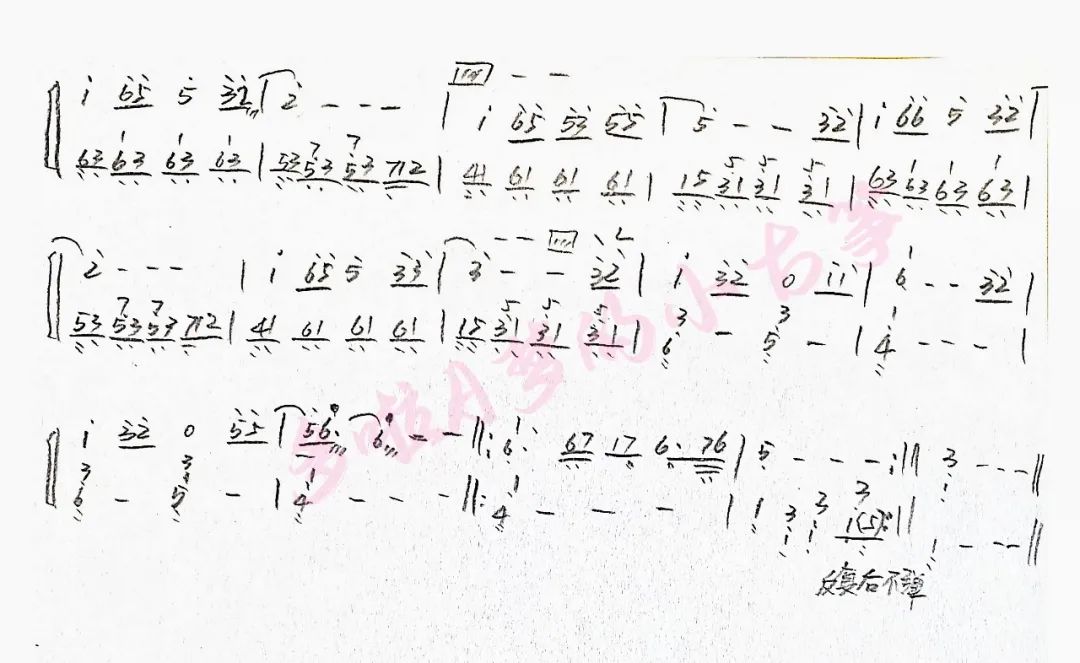 i 65 5 32 | 2 - - - | i 65 53 55 | 5 - - 32 | i 66 5 32 |
63 63 63 63 | 53 53 53 712 | 41 61 61 61 | 15 31 31 31 | 63 63 63 63 |
2 - - - | i 65 5 33 | 3 - - 32 | i 32 0 11 | 6 - - 32 |
53 53 53 712 | 41 61 61 61 | 15 31 31 31 | 6 - 5 - | 4 - - - |
i 32 0 55 | 56. 6 - - ‖: 6. 67 17 6. 76 | 5 - - - :‖ 3 - - - ‖
6 - 5 - | 4 - - - ‖: 4 - - - | 1 3 3 1(5) :‖ 1 - - - ‖
反复后不弹
多啦A梦的小古筝